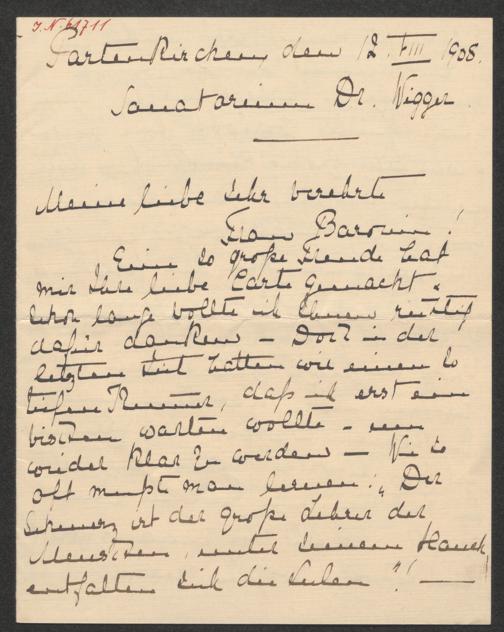 J. N. 61711
Partenkirchen, den 12. VIII 1908.
Sanatorium Dr. Wigger.
Meine liebe sehr verehrte
Frau Baronin!
Eine so große Freude hat
mir Ihre liebe Carte gemacht.
Schon lange wollte ich Ihnen
dafür danken – Doch in der
letzten Zeit hatten wir einen so
tiefen Kummer, daß ich erst ein
bischen warten wollte – um
wieder klar zu werden – Wie so
oft mußt man lernen: „Der
Schmerz ist der große Lehrer der
Menschen, unter seinem Hauch
entfalten sich die Seelen"! –